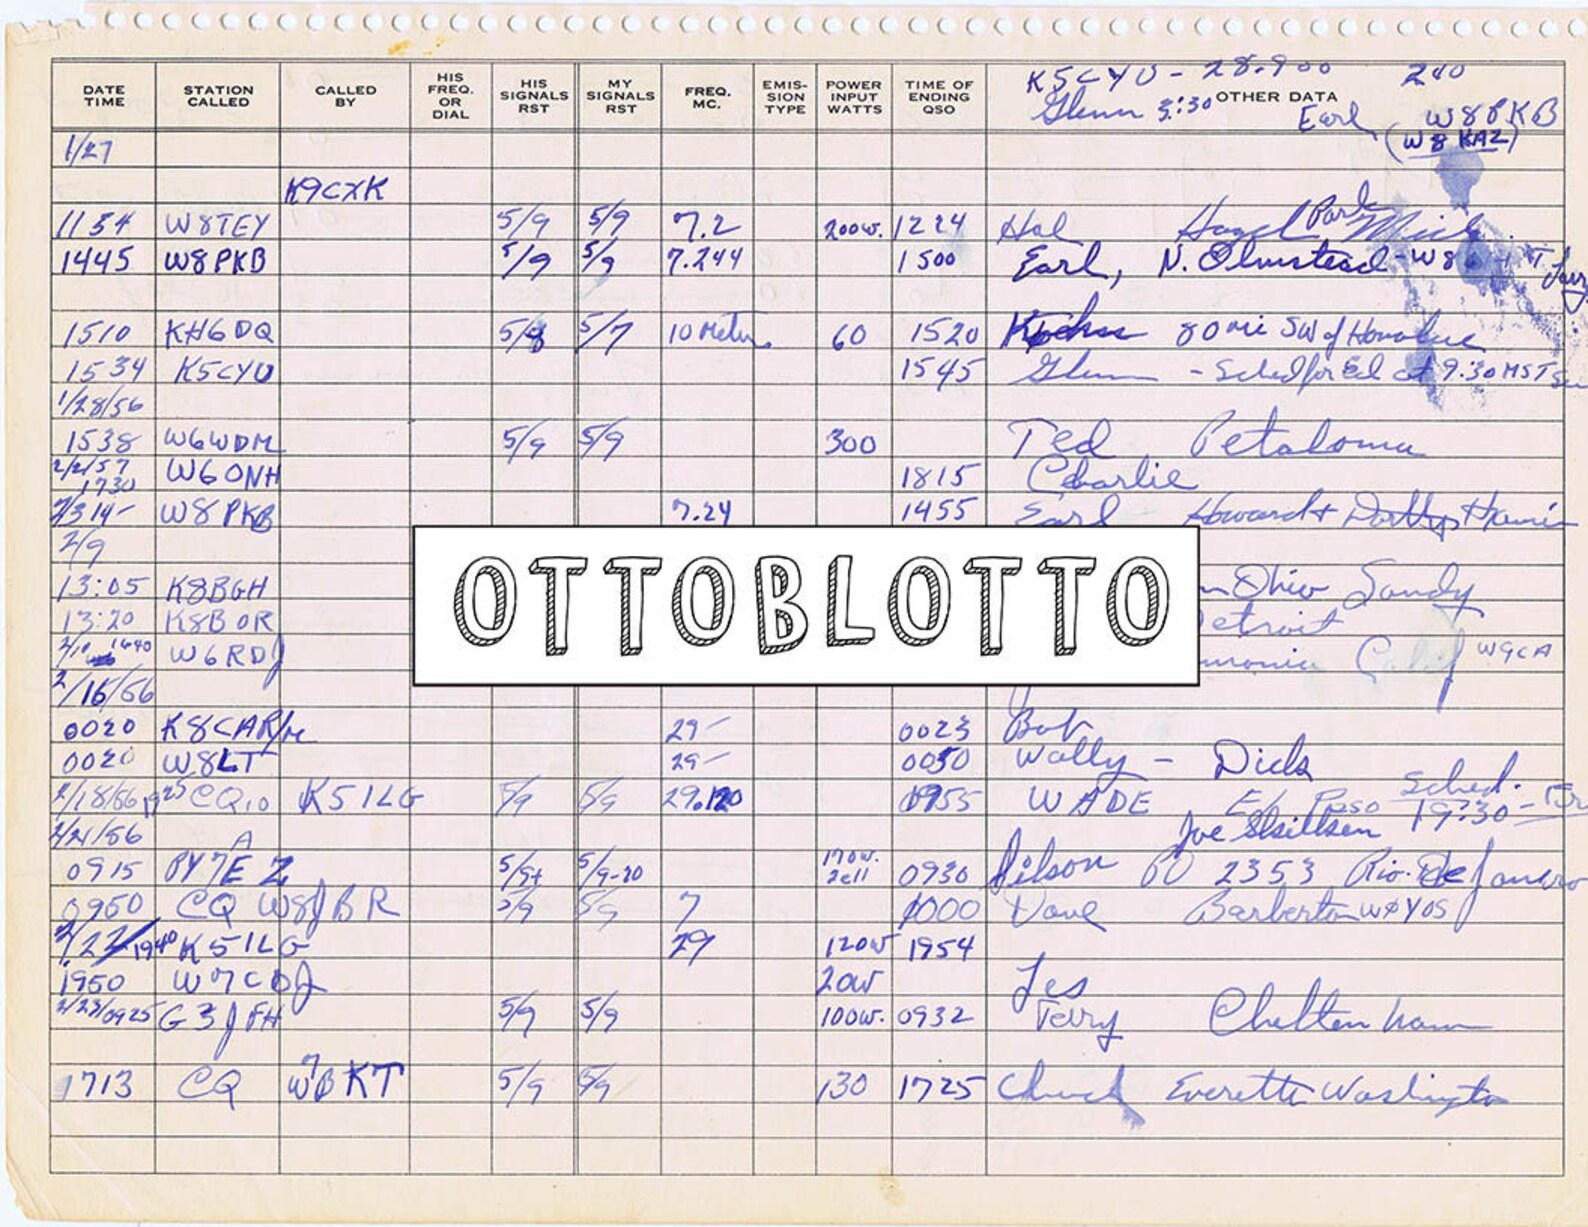 K5CYU - 28.900 240
DATE TIME STATION CALLED CALLED BY HIS FREQ. OR DIAL HIS SIGNALS RST MY SIGNALS RST FREQ. MC. EMIS-SION TYPE POWER INPUT WATTS TIME OF ENDING QSO OTHER DATA
Glenn 3:30 Earl W8PKB
(W8KAZ)
1/27
K9CXK
1134 W8TEY 5/9 5/9 7.2 200w. 1224 Hal Hazel Park Mich.
1445 W8PKB 5/9 5/9 7.244 1500 Earl, N. Olmstead - W8
1510 KH6DQ 5/8 5/7 10 Meters 60 1520 80 mi SW of Honolulu
1534 K5CYU 1545 Glenn - Sched for Ed at 9:30 MST
1/28/56
1538 W6WDM 5/9 5/9 300 Ted Petaloma
2/2/57 1730 W6ONH 1815 Charlie
W8PKB 7.24 1455 Earl Howard +
2/9
13:05 K8BGH Ohio Sandy
13:20 K8BOR etroit
2/10 1640 W6RDJ Calif W9CA
OTTOBLOTTO
2/16/56
0020 K8CAR/m 29- 0023 Bob
0020 W8LT 29- 0050 Wally - Dick
2/18/56 1925 CQ10 K5ILG 5/9 5/9 29.120 1955 WADE El Paso sched. 19:30 -
2/21/56 Joe
0915 PY7EZ A 5/9+ 5/9-20 170w. 0930 PO 2353 Rio De Janero
0950 CQ W8JBR 5/9 5/9 7 1000 Dave Barberton WØYOS
2/22/ 1940 K5ILG 29 120w 1954
1950 W7CDJ 20w Les
2/23/0925 G3JFH 5/9 5/9 100w. 0932 Terry Cheltenham
1713 CQ W7BKT 5/9 5/9 130 1725 Chuck Everette Washington